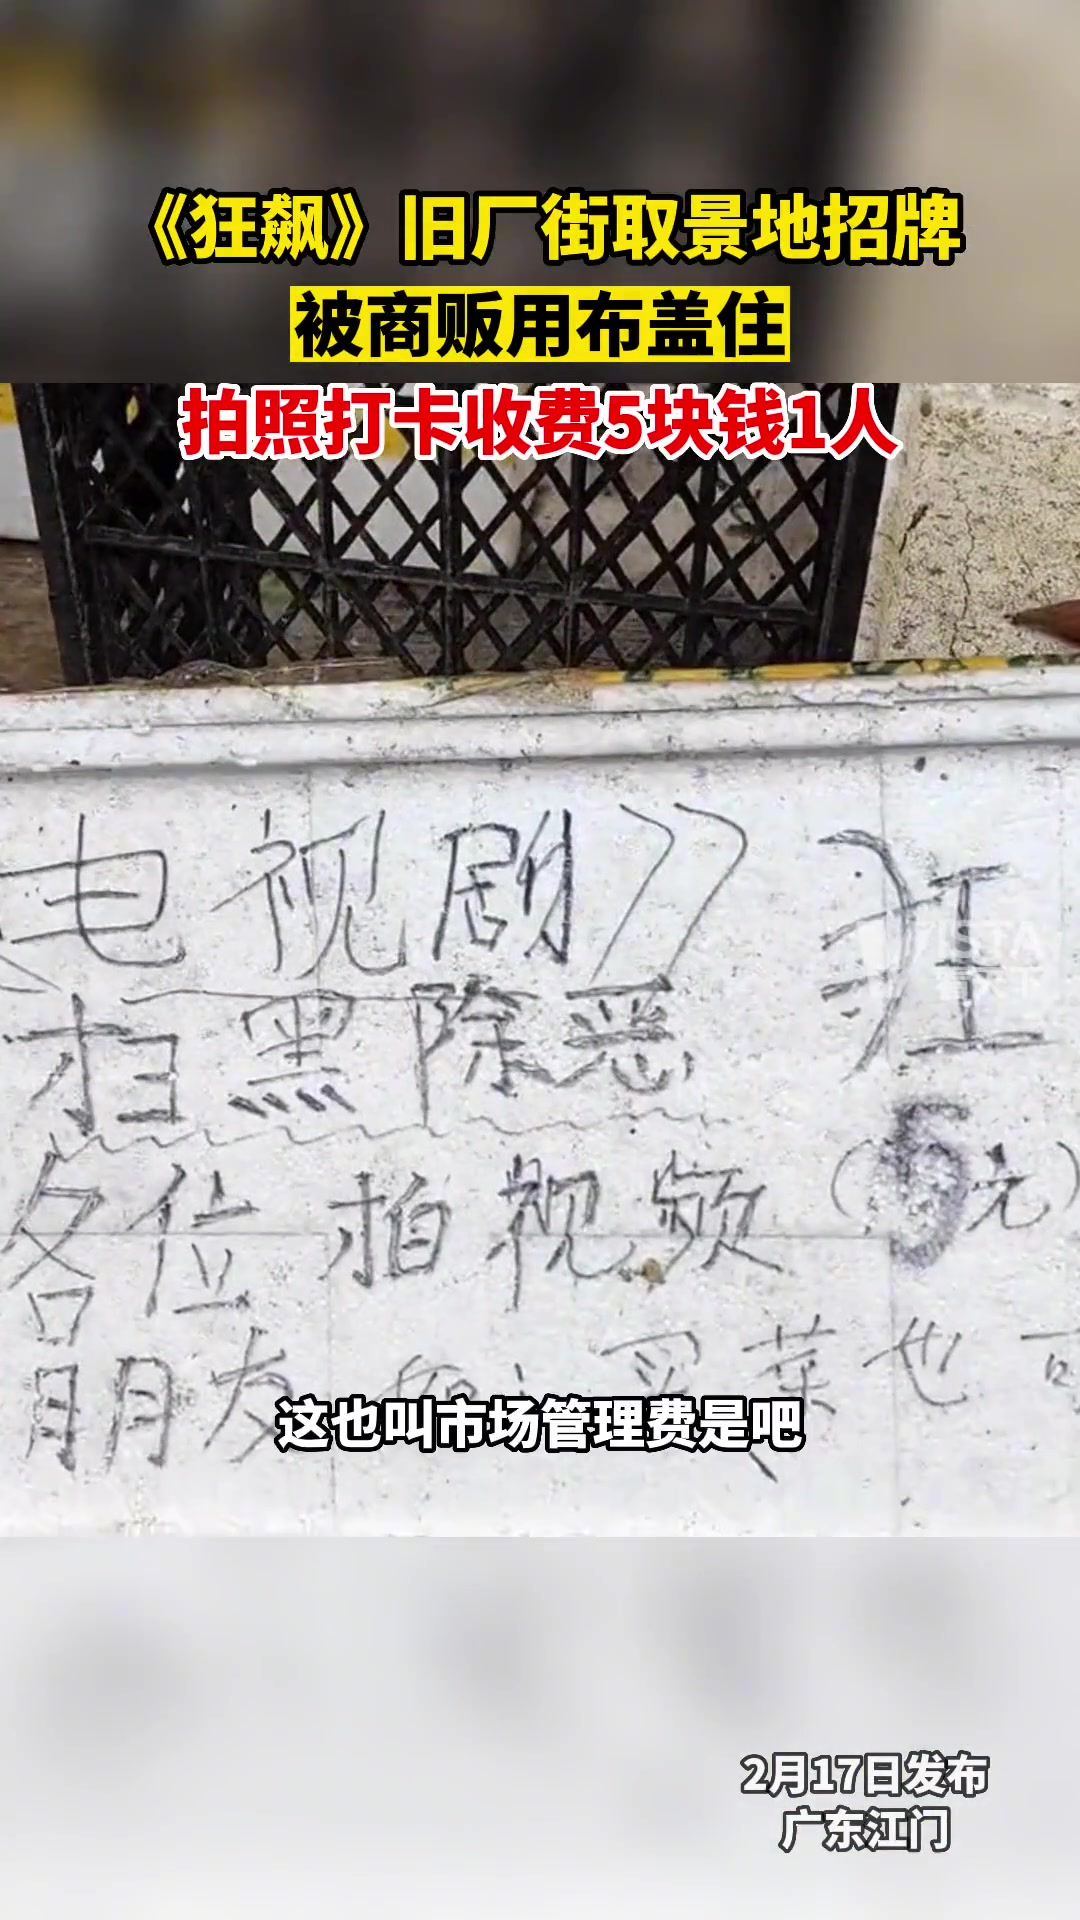 《狂飙》旧厂街取景地招牌
被商贩用布盖住
拍照打卡收费5块钱1人
电视剧》狂
VISTA
看天下
扫黑除恶
各位拍视频（5元）
朋友 买菜也可
这也叫市场管理费是吧
2月17日发布
广东江门